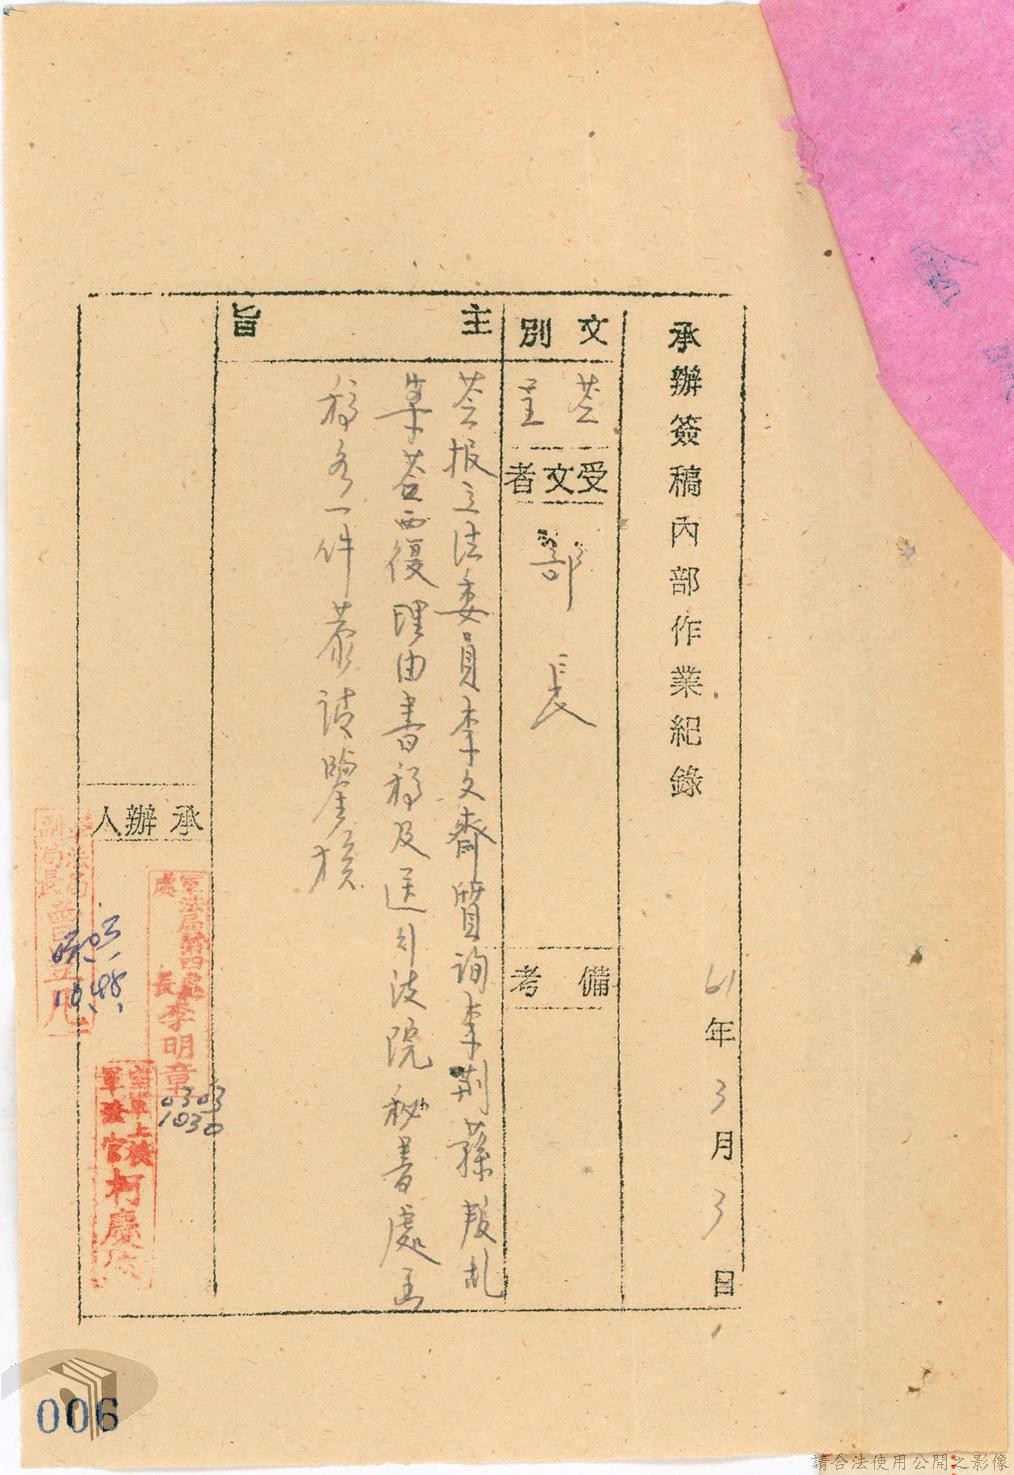 承辦簽稿內部作業紀錄
61年3月3日
文別
簽呈
受文者
部長
備考
主旨
簽報立法委員李文齋質詢李荊蓀叛亂
案答覆理由書稿及送行政院秘書處函
稿各一件恭請鑒核
承辦人
軍法局第四處
處長李明章
0303
1030
軍法官柯慶
軍法局
副局長曹
006
請合法使用公開之影像